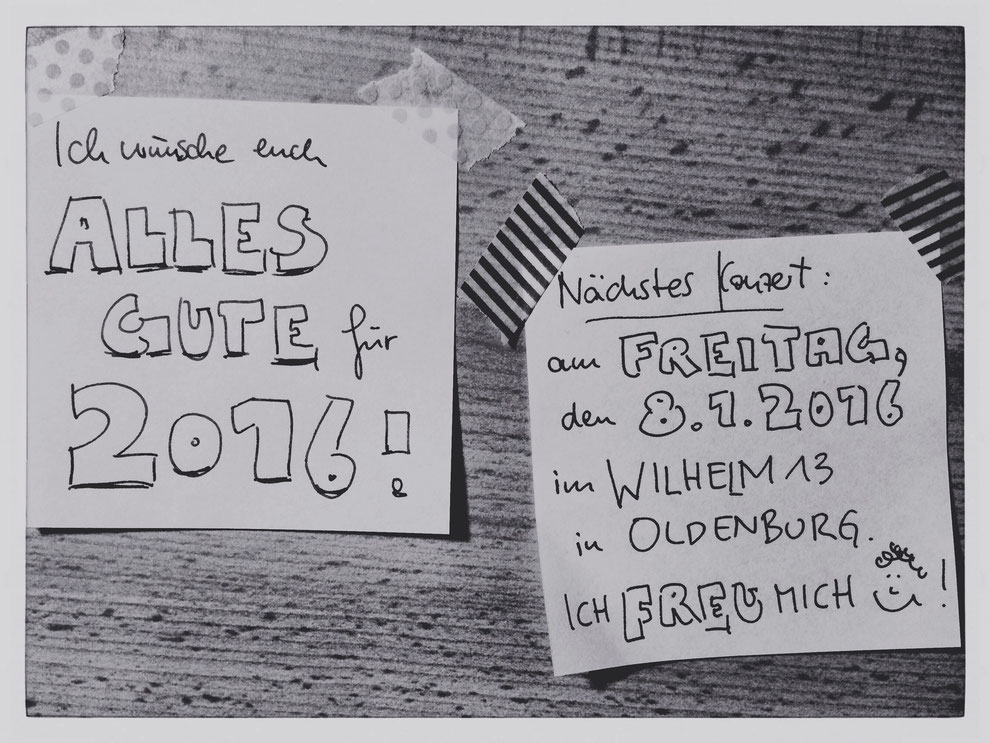 Ich wünsche euch
ALLES
GUTE für
2016!
Nächstes Konzert:
am FREITAG,
den 8.1.2016
im WILHELM 13
in OLDENBURG.
ICH FREU MICH !